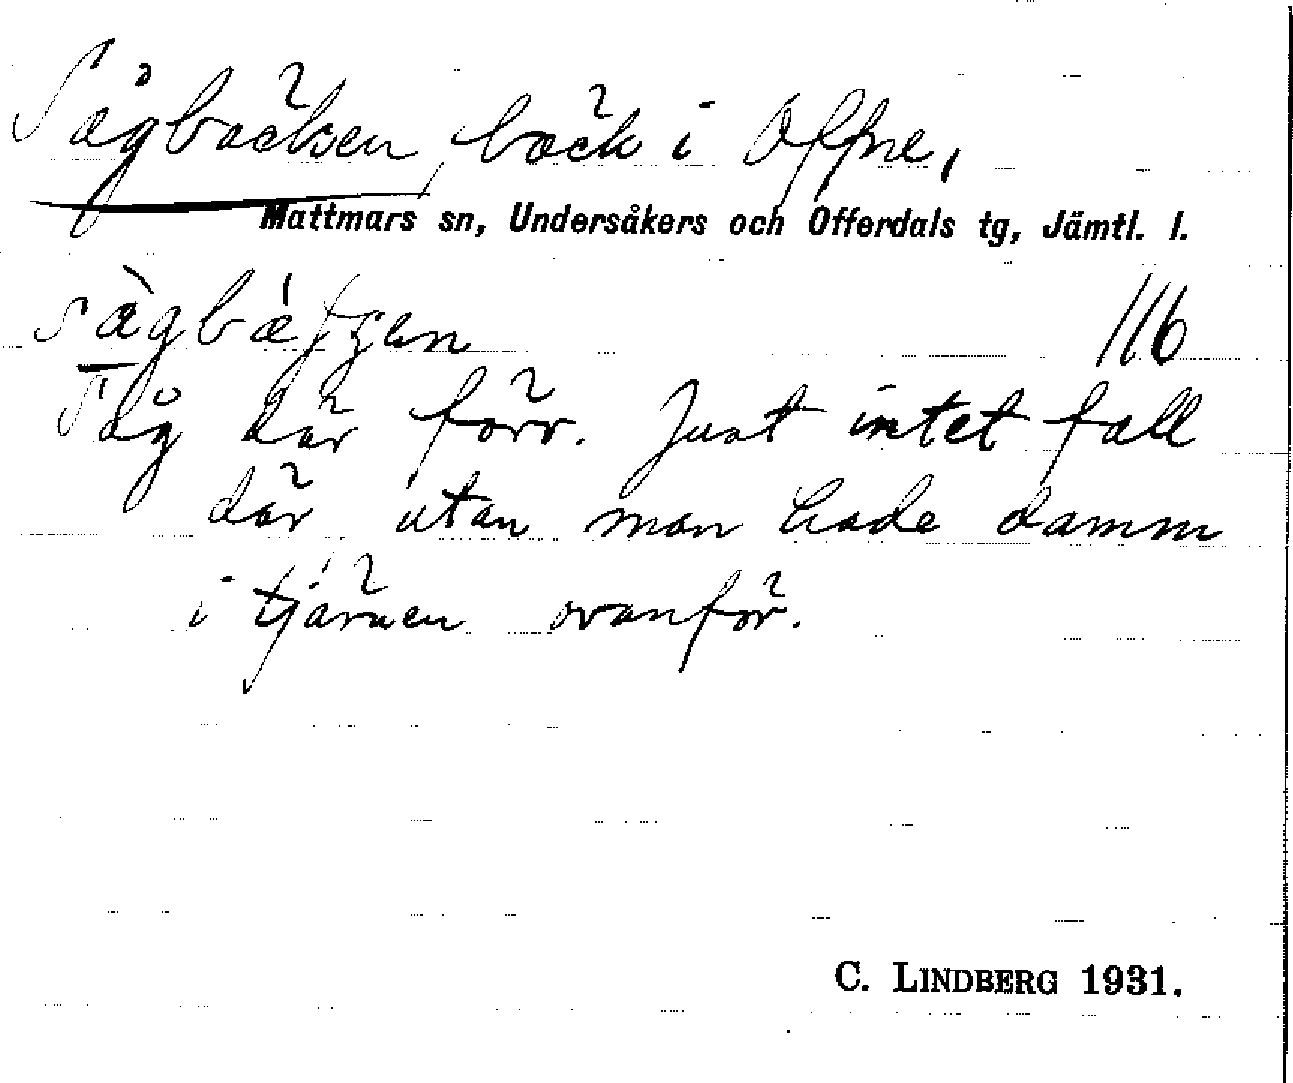 Sågbäcken, bäck i Offne,
Mattmars sn, Undersåkers och Offerdals tg, Jämtl. l.
116
Såg där förr. Just intet fall
där utan man hade damm
i tjärnen ovanför.
C. LINDBERG 1931.